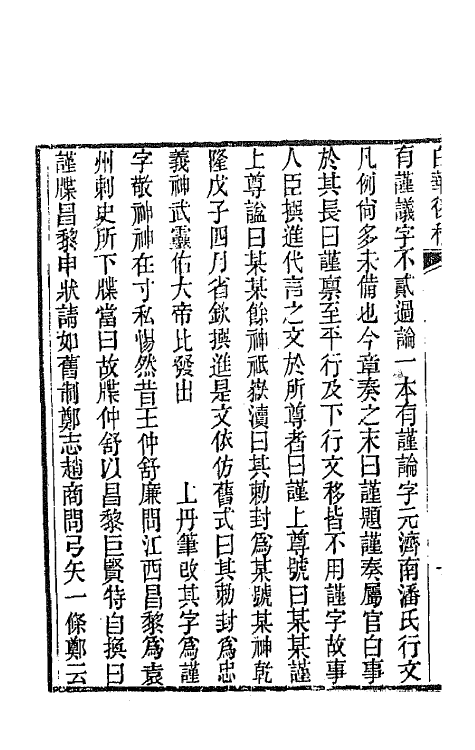 白華後稿
有謹議字不貳過論一本有謹論字元濟南潘氏行文
凡例尙多未備也今章奏之末曰謹題謹奏屬官白事
於其長曰謹稟至平行及下行文移皆不用謹字故事
人臣撰進代言之文於所尊者曰謹上尊號曰某某謹
上尊諡曰某某餘神祇嶽瀆曰其勅封爲某號某神乾
隆戊子四月省欽撰進是文依仿舊式曰其勅封爲忠
義神武靈佑大帝比發出　　　上丹筆改其字爲謹
字敬神神在寸私惕然昔王仲舒廉問江西昌黎爲袁
州刺史所下牒當曰故牒仲舒以昌黎巨賢特自換曰
謹牒昌黎申狀請如舊制鄭志趙商問弓矢一條鄭云